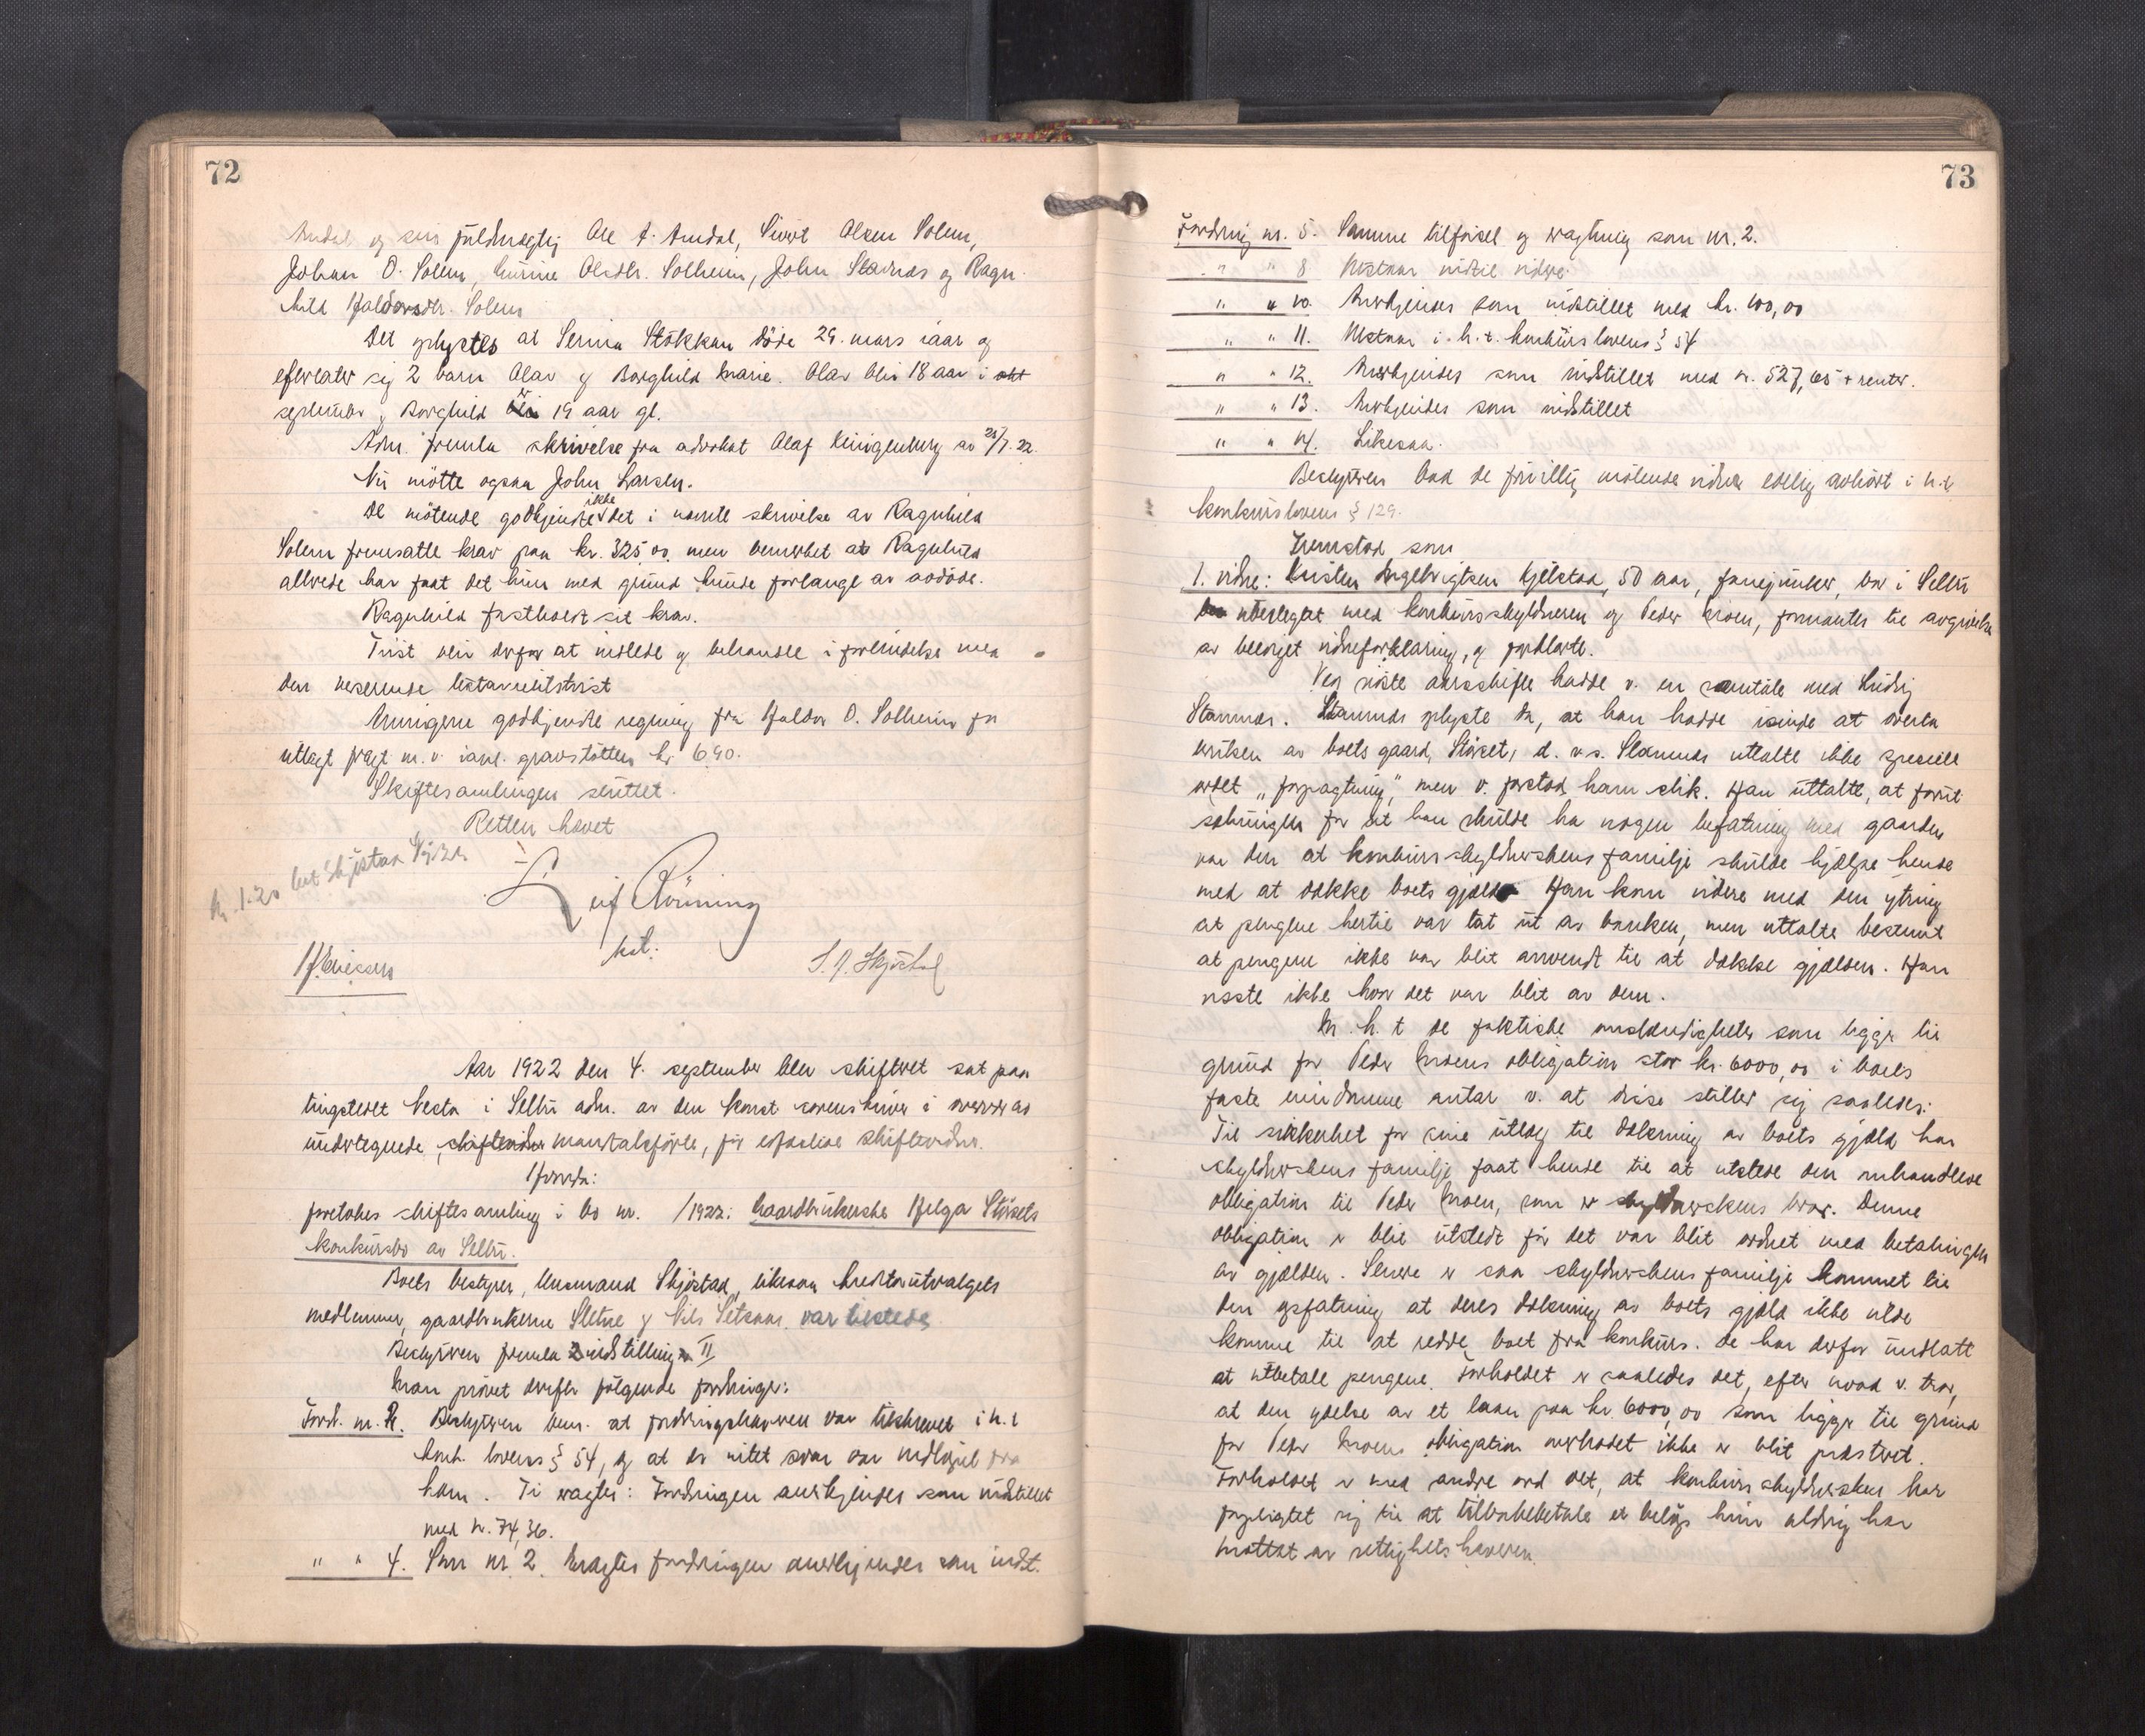 72
og sin fuldmægtig Ole A. Amdal, Sivert Olsen Solem,
Johan O. Solem, Olsdtr. Solheim, John Stamnes og Ragn-
hild Haldorsdtr. Solem
Det oplystes at Serina Stökkan döde 29. mars iaar og
efterlater sig 2 barn Olav og Borghild Marie. Olav blir 18 aar i okt
september og Borghild er 19 aar gl.
Adm. fremla skrivelse fra advokat Olaf Klingenberg av 28/7.22.
Nu mötte ogsaa John Larsen.
De mötende godkjendte ikke det i nævnte skrivelse av Ragnhild
Solem fremsatte krav paa kr. 325,00 men bemerket at Ragnhild
allerede har faat det hun med grund kunde forlange av avdöde.
Ragnhild fastholdt sit krav.
Tvist blir derfor at indlede og behandle i forbindelse med
den verserende testamentstvist
Arvingerne godkjendte regning fra Haldor O. Solheim for
utlagt fragt m.v. ianl. gravstötten kr. 6,90.
Skiftesamlingen sluttet.
Retten hævet
kr. 1.20 bet Skjöstad
Leif Rönning
kst.
H. Evjesen
S. J. Skjöstad
Aar 1922 den 4. september blev skifteret sat paa
tingstedet Nesta i Selbu adm. av den konst. sorenskriver i overvær av
undertegnede skiftevidner mandtalsförte, för edfæstede skiftevidner.
Hvorda:
foretokes skiftesamling i bo nr. /1922: Gaardbrukerske Helga Stösets
konkursbo av Selbu.
Boets bestyrer, lensmand Skjöstad, likesaa kreditorutvalgets
medlemmer, gaardbrukerne Sletne og Nils Setsaas var tilstede
Bestyreren fremla indstilling II
Man prövet derefter fölgende fordringer:
Fordr. nr. 2. Bestyreren bem. at fordringshaveren var tilskrevet i h.t
konk. lovens § 54, og at der intet svar var indlöpet fra
ham. Ti vagtes: Fordringen anerkjendes som indstillet
med kr. 74,36.
" " 4. Som nr. 2. Eragtes fordringen anerkjendes som indst.
73
Fordring nr. 5. Samme tilförsel og eragtning som nr. 2.
" " 8 Utstaar indtil videre
" " 10. Anerkjendes som indstillet med kr. 100,00
" " 11. Utstaar i.h.t. konkurslovens § 54
" " 12. Anerkjendes som indstillet med kr. 527,65 + renter.
" " 13. Anerkjendes som indstillet
" " 14. Likesaa.
Bestyreren bad de frivillig mötende vidner edelig avhört i h.t.
konkurslovens § 129.
Fremstod som
1. vidne: Kristen Ingebrigtsen Kjelstad, 50 aar, fanejunker, bor i Selbu
ubeslegtet med konkursskyldneren og Peder Moen, formantes til avgivelse
av beediget vidneforklaring, og forklarte.
Ved siste aarsskifte hadde v. en samtale med Ludvig
Stamnes. Stamnes oplyste da, at han hadde isinde at overta
bruken av boets gaard, Stöset, d.v.s. Stamnes uttalte ikke specielt
ordet „forpagtning", men v. forstod ham slik. Han uttalte, at forut
sætningen for at han skulde ha nogen befatning med gaarden
var den at konkursskyldnerskens familje skulde hjælpe hende
med at dække boets gjæld. Han kom videre med den ytring
at pengene hertil var tat ut av banken, men uttalte bestemt
at pengene ikke var blit anvendt til at dække gjælden. Han
visste ikke hvor det var blit av dem.
M.h.t de faktiske omstændigheter som ligger til
grund for Peder Moens obligation stor kr. 6000,00 i boets
faste eiendomme antar v. at disse stiller sig saaledes:
Til sikkerhet for sine utlæg til dækning av boets gjæld har
skyldnerskens familje faat hende til at utstede den omhandlede
obligation til Peder Moen, som er skyldnerskens bror. Denne
obligation er blit utstedt för det var blit ordnet med betalingen
av gjælden. Senere er saa skyldnerskens familje kommet til
den opfatning at deres dækning av boets gjæld ikke vilde
komme til at redde boet fra konkurs. De har derfor undlatt
at utbetale pengene. Forholdet er saaledes det, efter hvad v. tror,
at den ydelse av et laan paa kr. 6000,00 som ligger til grund
for Peder Moens obligation overhodet ikke er blit præstert.
Forholdet er med andre ord det, at konkursskyldnersken har
forpligtet sig til at tilbakebetale et belöp hun aldrig har
mottat av rettighetshaveren.